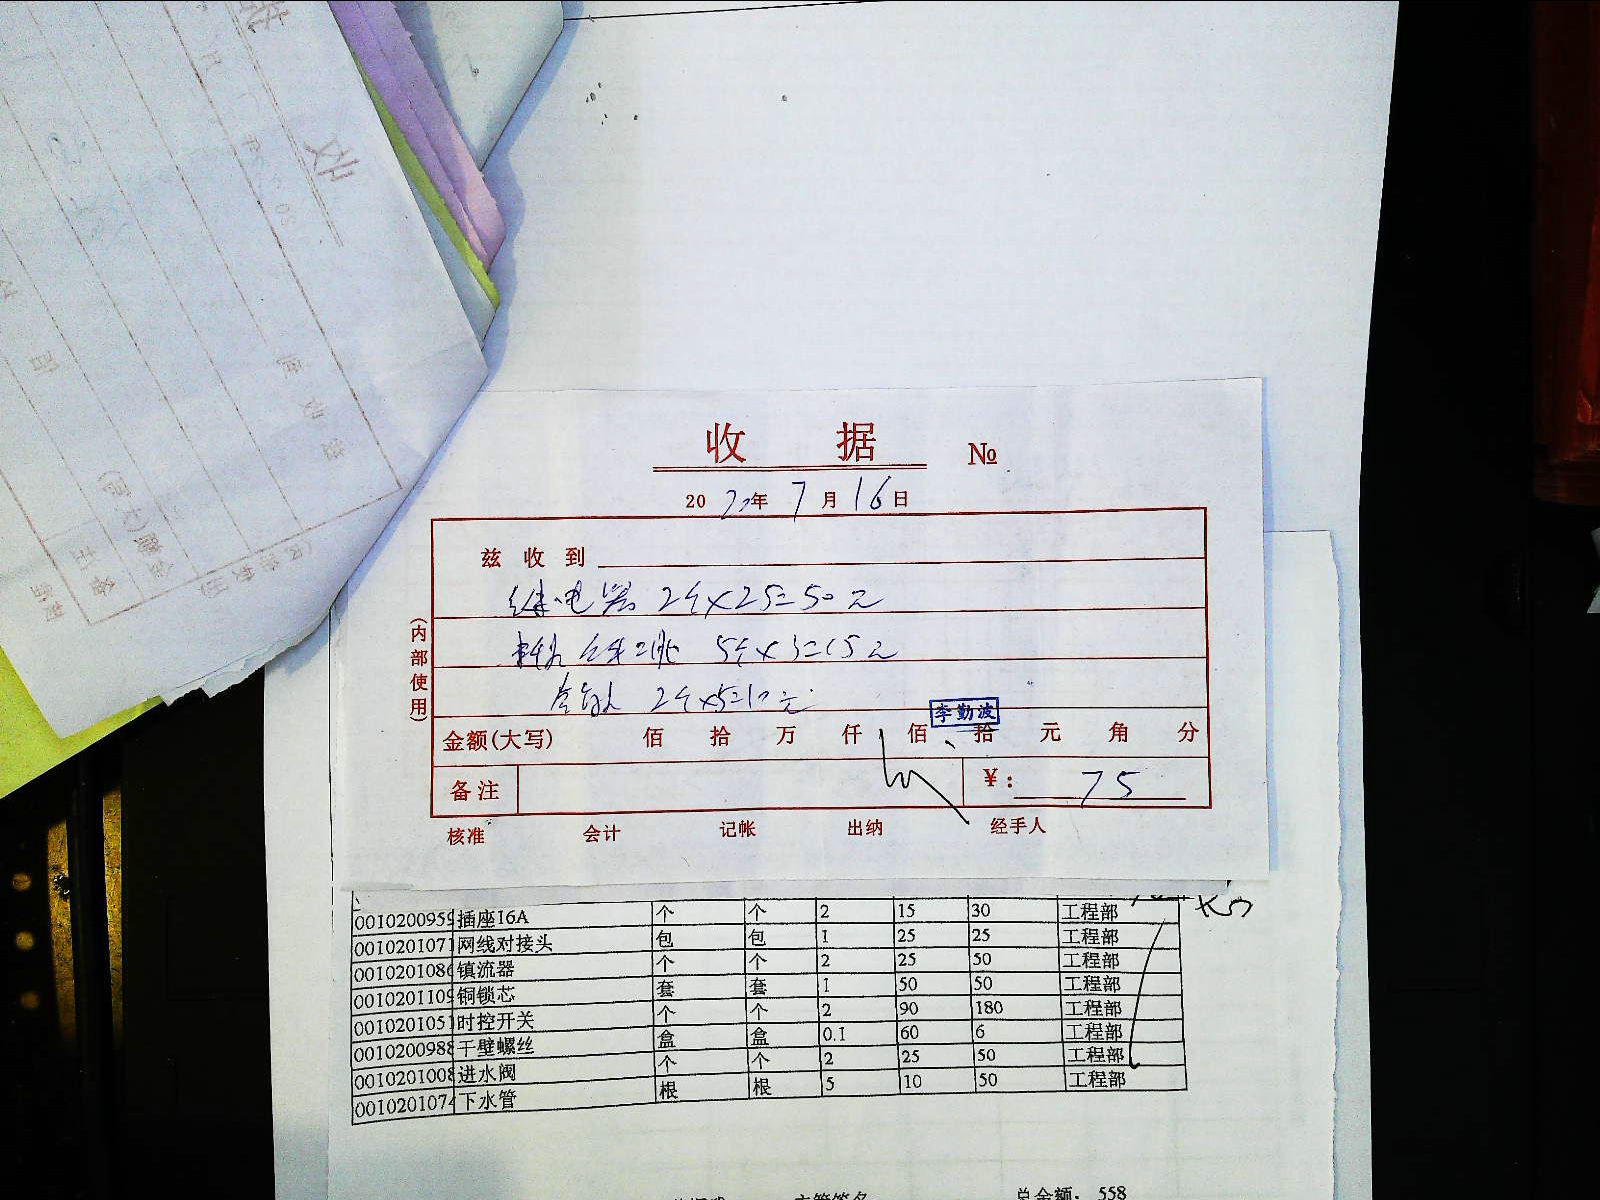 收 据 №
20 22年 7月 16日
兹 收 到
继电器 2个×25=50元
5个×3=15元
2个×5=10元
(内部使用)
李勤波
金额(大写) 佰 拾 万 仟 佰 拾 元 角 分
备注 ¥: 75
核准 会计 记帐 出纳 经手人
0010200959 插座16A 个 个 2 15 30 工程部
001020107 网线对接头 包 包 1 25 25 工程部
001020108 镇流器 个 个 2 25 50 工程部
0010201109 铜锁芯 套 套 1 50 50 工程部
001020105 时控开关 个 个 2 90 180 工程部
001020098 干壁螺丝 盒 盒 0.1 60 6 工程部
001020100 进水阀 个 个 2 25 50 工程部
001020107 下水管 根 根 5 10 50 工程部
主管签名 总金额: 558